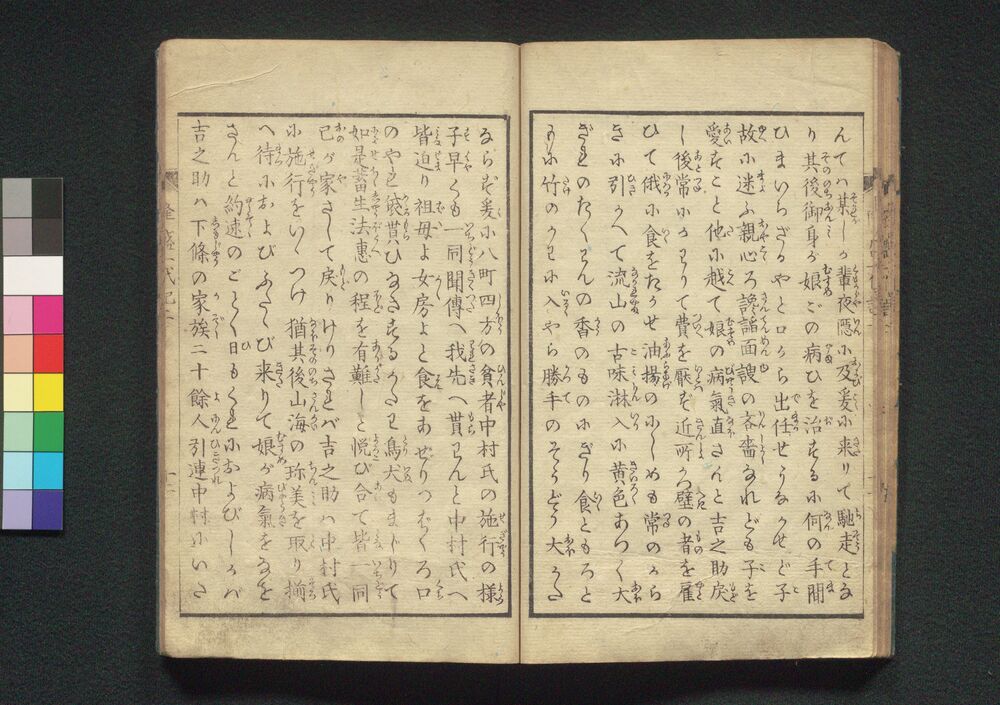 んてハ某しが輩夜隠に及爰に来りて馳走とな
り其後御身が娘ごの病ひを治するに何の手間
ひまいらざるやと口から出任せうなかせど子
故に迷ふ親心ろ諂諛面諛の吝嗇なれども子を
愛すこと他に越て娘の病氣直さんと吉之助戻
し後常にかわりて費を厭ず近所から壁の者を雇
ひて俄に食をたかせ油揚のにしめも常のから
きに引かへて流山の古味淋入に黄色あつく大
ぎれのたくわんの香のものにぎり食ともろと
もに竹のかわに入やら勝手のそうどう大かた
ならず爰に八町四方の貧者中村氏の施行の様
子早くも一同聞傳へ我先へ貰わんと中村氏へ
皆迫り祖母よ女房よと食をあせりつぢくろ口
のやれ袋貰ひなさするかたわ鳥犬もまじりて
如是畜生法惠の程を有難しと悦び合て皆一同
己が家さして戻りけりされバ吉之助ハ中村氏
に施行をいゝつけ猶其後山海の珍美を取り揃
へ待におよびふたゝび来りて娘が病氣をなを
さんと約速のごとく日もくれにおよびしかバ
吉之助ハ下條の家族二十餘人引連中村にいさ